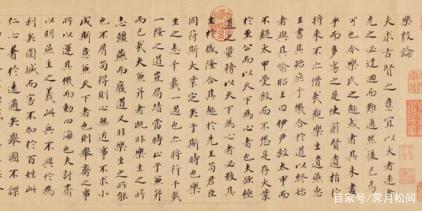 樂毅論
夫求古賢之意宜以大者遠者
先之必迂迴而難通然後已焉
可也今樂氏之趣或者其未盡
乎而多劣之是使前賢失指於
將來不亦惜哉觀樂生遺燕惠
王書其殆庶乎機合乎道以終始
者與其喻昭王曰伊尹放太甲而
不疑太甲受放而不怨是存大業
於至公而以天下為心者也夫欲極
道之量務以天下為心者必致其
主於盛隆合其趣於先王苟君臣
同符斯大業定矣于斯時也樂
生之志千載一遇也亦將行千載
一隆之道豈其局蹟當時止於兼并
而已哉夫兼并者非樂生之所
屑彊燕而廢道又非樂生之所求
也不屑苟得則心無近事不求小
成斯意兼天下者也則舉齊之事
所以運其機而動四海也夫討齊
以明燕主之義此兵不興於為
利矣圍城而害不加於百姓此
仁心著於遐邇矣舉國不謀
百家号/霁月松间